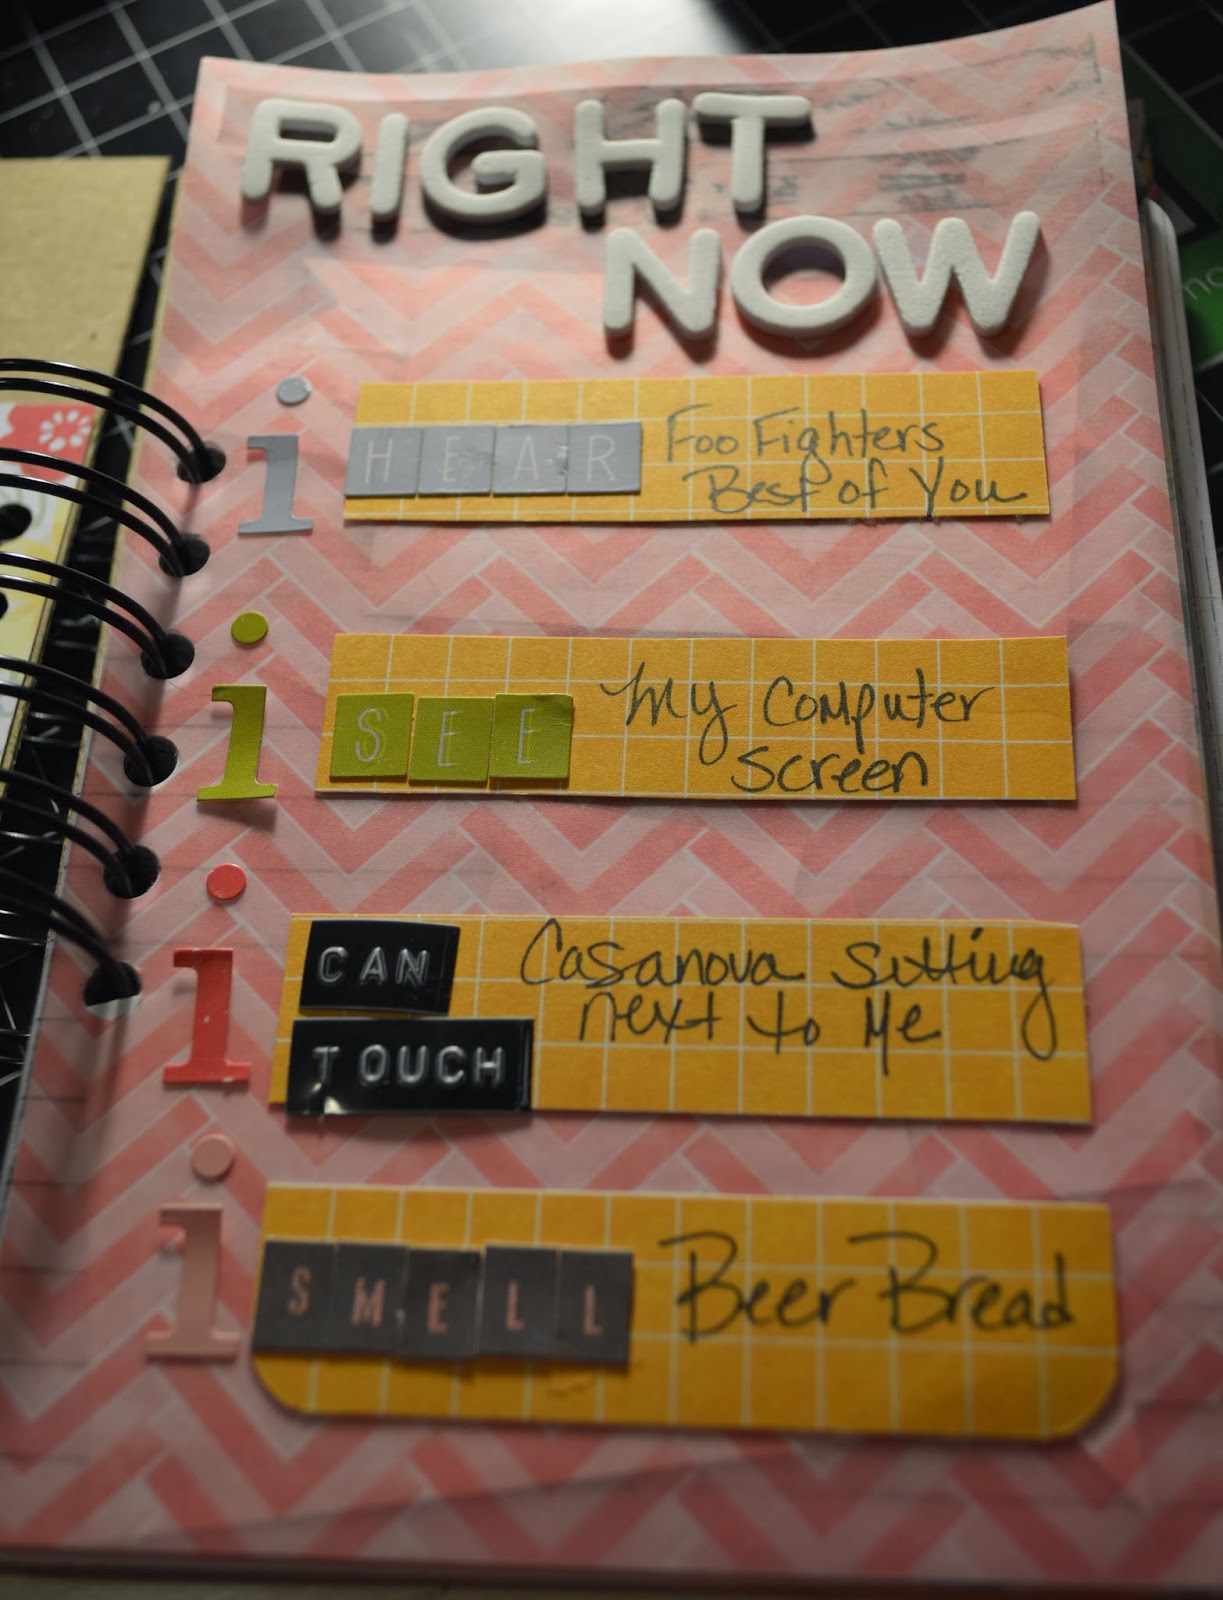 RIGHT
NOW
i HEAR Foo Fighters
Best of You
i SEE My Computer
Screen
i CAN Casanova sitting
TOUCH next to Me
i SMELL Beer Bread